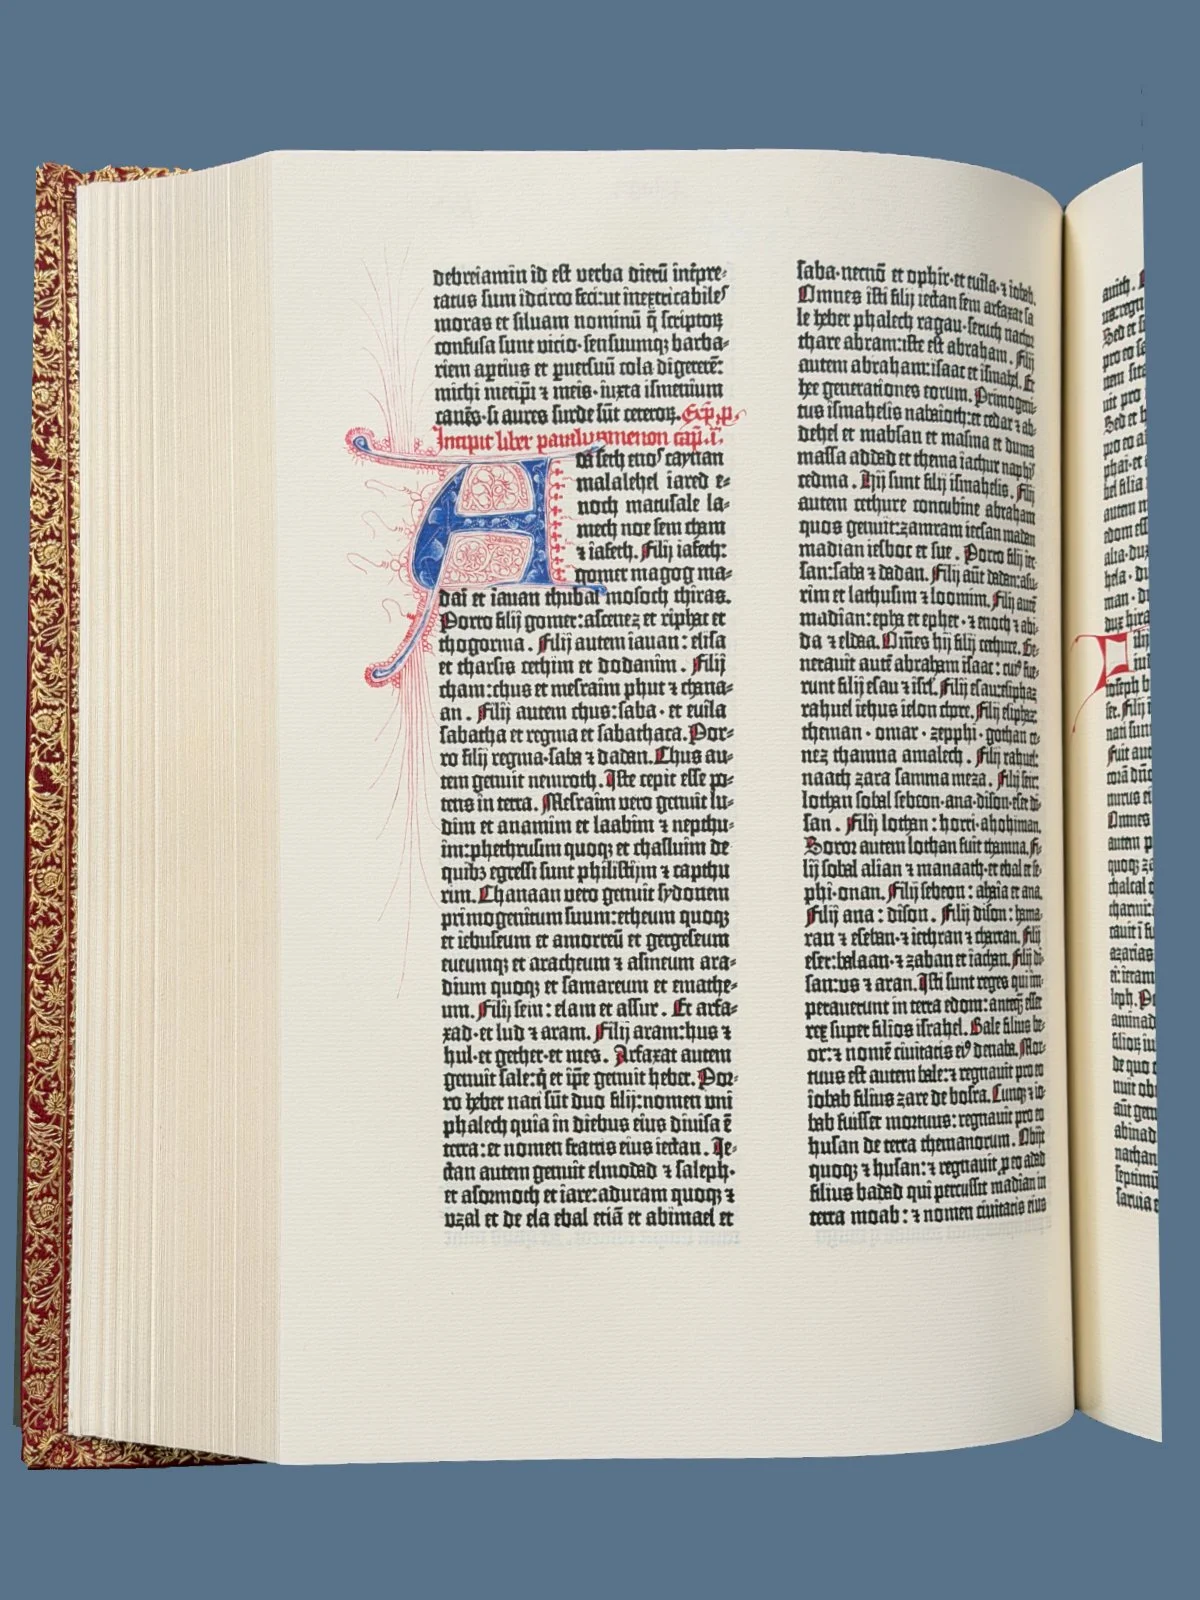 debreiamin id est verba dierū inťpre-
tatus sum idcirco feci:ut inextricabiles
moras et silvam nominū q̄ scriptoꝝ
confusa sunt vicio· sensuumqꝫ barba-
riem apcius et ꝑ versuū cola digererē:
michi metip̄i ⁊ meis· iuxta ismenium
canēs· si aures surde sūt ceteroꝝ. Exp. p.
Incipit liber paralypomenon cap. i.
Adā seth enos caynan
malalehel iared e-
noch matusale la-
mech noe sem cham
⁊ iafeth. Filij iafeth:
gomer magog ma-
dai et iavan thubal mosoch thiras.
Porro filij gomer:ascenez et riphat et
thogorma. Filij autem iauan: elisa
et tharsis cethim et dodanim. Filij
cham:chus et mesraim phut ⁊ chana-
an. Filij autem chus:saba· et euila
sabatha et regma et sabathaca. Por-
ro filij regma·saba ⁊ dadan. Chus au-
tem genuit nemroth. Iste cepit esse po-
tens in terra. Mesraim vero genuit lu-
dim et anamim et laabim ⁊ nepthu-
im:phethrusim quoqꝫ et chasluim de
quibꝫ egressi sunt philistijm ⁊ capthu
rim. Chanaan vero genuit sydonem
primogenitum suum:etheum quoqꝫ
et iebuseum et amorreū et gergeseum
eueumqꝫ et aracheum ⁊ asineum ara-
dium quoqꝫ et samareum et emathe-
um. Filij sem: elam et assur. Et arfa-
xad·et lud ⁊ aram. Filij aram:hus ⁊
hul·et gether·et mes. Arfaxat autem
genuit sale:q̄ et ip̄e genuit heber. Por-
ro heber nati sūt duo filij:nomen uni
phalech quia in diebus eius divisa ē
terra: et nomen fratris eius iectan. Ie-
ctan autem genuit elmodad ⁊ saleph·
et asormoth et iare:aduram quoqꝫ ⁊
vzal et de cla ebal etiā et abimael et
saba·necnō et ophir·et euila·⁊ iobab.
Omnes isti filij iectan sem arfaxat sa
le heber phalech ragau·seruch nachor
thare abram:iste est abraham. Filij
autem abraham:isaac et ismahel. Et
hee generationes eorum. Primogeni-
tus ismahelis nabaioth:et cedar ⁊ ab-
dehel et mabsan et masma et duma
massa addad et thema iachur naphis
cedma. Hij sunt filij ismahelis. Filij
autem cethure concubine abraham
quos genuit:zamram iecsan madan
madian iesboc et sue. Porro filij iec-
san:saba ⁊ dadan. Filij aūt dadan:assu-
rim et lathusim ⁊ loomim. Filij autē
madian:epha et epher·⁊ enoch ⁊ abi-
da ⁊ eldaa. Oīnes hij filij cethure. Ge-
nerauit autē abraham isaac: cui⁹ fue-
runt filij esau ⁊ isrl̄. Filij esau:eliphaz
rahuel iehus ielon chore. Filij eliphaz:
theman· omar· zepphi· gothan ce-
nez thamna amalech. Filij rahuel:
naath zara samma meza. Filij seir:
lothan sobal sebeon·ana·dison·eser di-
san. Filij lothan: horri·ahohiman.
Soror autem lothan fuit thamna. Fi-
lij sobal alian ⁊ manaath·et ebal et se-
phi·onan. Filij sebeon: ahaia et ana.
Filij ana: dison. Filij dison: hama-
ran ⁊ eseban·⁊ iethran ⁊ charran. Filij
eser:balaan·⁊ zaban et iachan. Filij di-
san:us ⁊ aran. Isti sunt reges qui im-
peraverunt in terra edom: anteq̄ esset
rex super filios israhel. Bale filius be-
or: ⁊ nomē civitatis ei⁹ denaba. Mor-
tuus est autem bale:⁊ regnauit pro eo
iobab filius zare de bosra. Cumqꝫ ⁊ io-
bab fuisset mortuus: regnauit pro eo
husan de terra themanorum. Obijt
quoqꝫ ⁊ husan: ⁊ regnauit ꝓ eo adad
filius badad qui percussit madian in
terra moab: ⁊ nomen civitatis eius